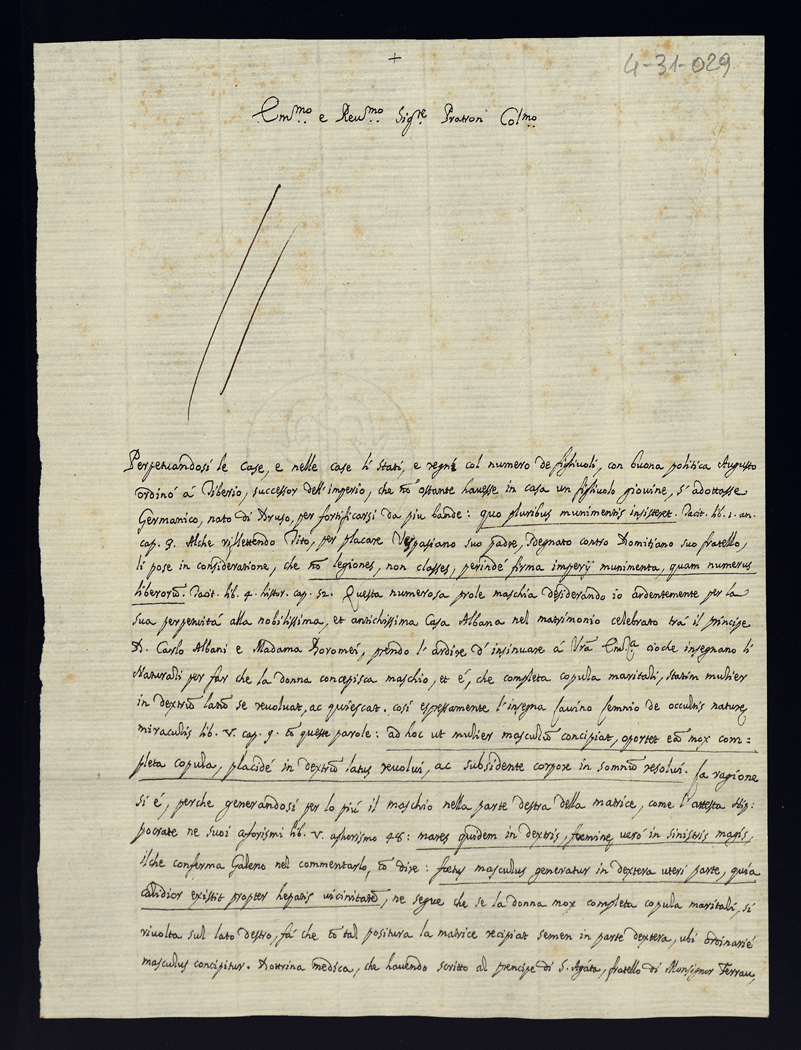 +
4-31-029
Em.mo e Reu.mo Sig.re Pratron Col.mo
Perpetuandosi le case, e nelle case li stati, e regni col numero de figliuoli, con buona politica Augusto
ordinó á Tiberio, successor dell'imperio, che nõ ostante hauesse in casa un figliuolo giouine, s'adottasse
Germanico, nato di Druso, per fortificarsi da piu bande: quo pluribus munimentis insisteret. Tacit. lib. 1. an.
cap. 3. Alche riflettendo Tito, per placare Vespasiano suo padre, sdegnato contro Domitiano suo fratello,
li pose in consideratione, che nõ legiones, non classes, perindé firma imperij munimenta, quam numerus
liberorũ. Tacit. lib. 4. histor. cap. 52. Questa numerosa prole maschia desiderando io ardentemente per la
sua perpetuitá alla nobilissima, et antichissima Casa Albana nel matrimonio celebrato trá il principe
D. Carlo Albani e Madama Boromei, prendo l'ardire d'insinuare á Vrã Em.za cioche insegnano li
Naturali per far che la donna concepisca maschio, et é, che completa copula maritali, statim mulier
in dextrũ latũs se reuoluat, ac quiescat. cosi espressamente l'insegna Leuino Lennio de occultis naturę
miraculis lib. v. cap. 9. cõ queste parole: ad hoc ut mulier masculũ concipiat, oportet eã mox com=
pleta copula, placidé in dextrũ latus reuolui, ac subsidente corpore in somnũ resolui. La ragione
si é, perche generandosi per lo piú il maschio nella parte destra della matrice, come l'attesta Hip:
pocrate ne suoi aforismi lib. v. aphorismo 48: mares quidem in dextris, foeminę ueró in sinistris magis,
ilche conferma Galeno nel commentarlo, cõ dire: foetus masculus generatur in dextera uteri parte, quia
calidior existit propter hepatis uicinitatẽ, ne segue che se la donna mox completa copula maritali, si
riuolta sul lato destro, fá che cõ tal positura la matrice recipiat semen in parte dextera, ubi ordinarié
masculus concipitur. Dottrina medica, che hauendo scritto al prencipe di S. Agáta, fratello di Monsignor Ferrau,